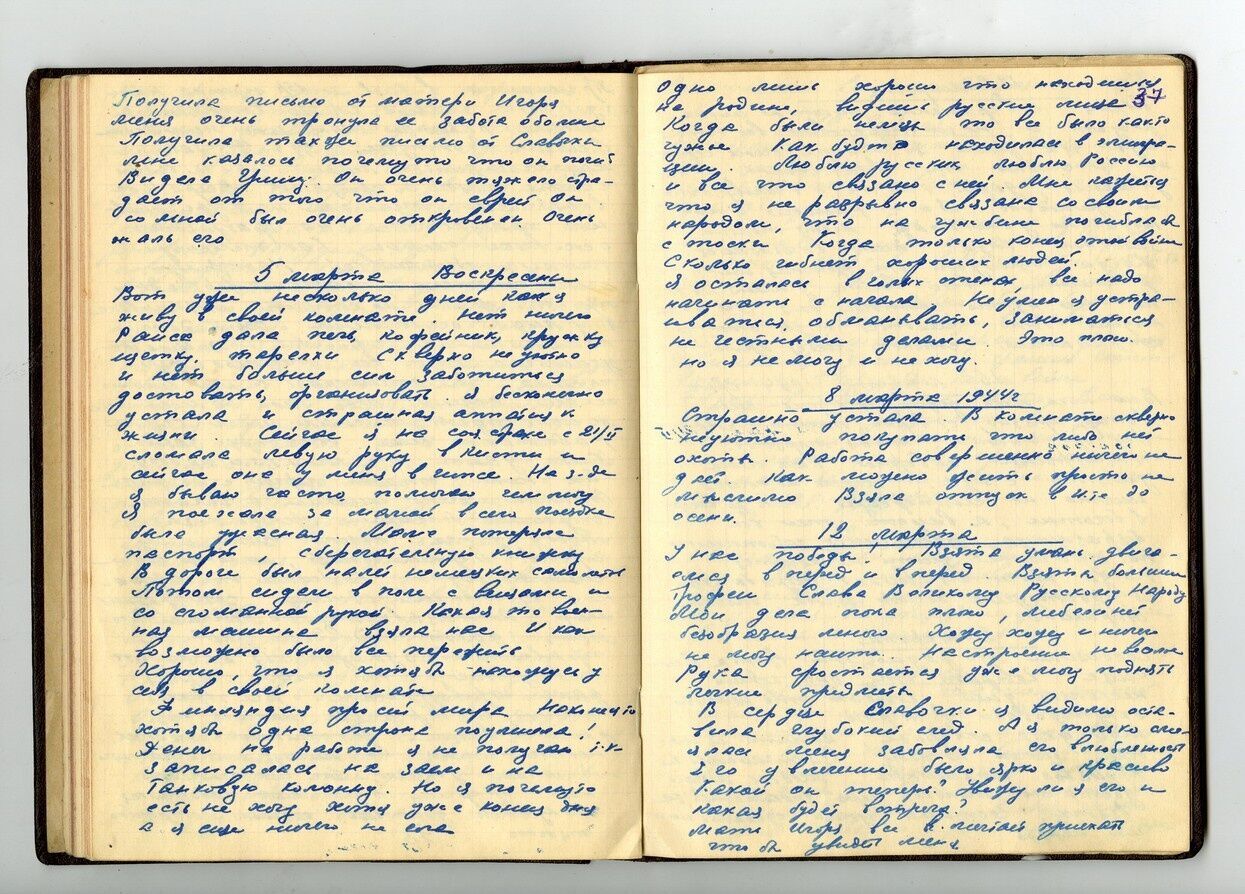 Получила письмо от матери Игоря
меня очень тронула ее забота обо мне
Получила также письмо от Славочки
мне казалось почему то что он погиб
Видела Гришу. Он очень тяжело стра-
дает от того что он еврей Он
со мной был очень откровенен Очень
жаль его
5 марта Воскресенье
Вот уже несколько дней как я
живу в своей комнате Нет ничего
Раиса дала печь, кофейник, кружку
щетку, тарелки Скверно неуютно
и нет больше сил заботиться
доставать, организовать. Я бесконечно
устала и страшная аппатия к
жизни. Сейчас я на соц страхе с 21/II
сломала левую руку в кисти и
сейчас она у меня в гипсе. На з-де
я бываю часто, помогаю чем могу
Я поехала за мамой в село поездка
была ужасная. Мама потеряла
паспорт, сберегательную книжку
В дороге был налет немецких самолетов
Потом сидели в поле с вещами и
со сломанной рукой. Какая то воен-
ная машина взяла нас И как
возможно было все пережить
Хорошо, что я хотябы нахожусь у
себя в своей комнате
Финляндия просит мира Наконец то
хотябы одна страна поумнела!
Деньги на работе я не получаю т.к
записалась на заем и на
танковую колонну. Но я почемуто
есть не хочу хотя уже конец дня
а я еще ничего не ела
37
Одно лишь хорошо что находимся
на родине, видишь русские лица
Когда были немцы то все было както
чужое как будто находилась в эмигра-
ции. Люблю русских, люблю Россию
и все что связано с ней. Мне кажется
что я не разрывно связана со своим
народом, что на чужбине погибла бы
с тоски Когда только конец этой войне
Сколько гибнет хороших людей.
Я осталась в голых стенах, все надо
начинать с начала. Не умею я устра-
иваться, обманывать, заниматься
не честными делами. Это плохо.
но я не могу и не хочу.
8 марта 1944г
Страшно устала. В комнате скверно
неуютно покупать что либо нет
охоты. Работа совершенно ничего не
дает. Как можно жить просто не
мыслимо Взяла отпуск в И-те до
осени.
12 марта
У нас победы. Взята Умань. двига-
емся вперед и вперед. Взяты большие
трофеи Слава Великому Русскому Народу
Мои дела пока плохо, мебели нет
безобразия много. Хожу хожу и ничего
не могу найти. Настроение неважное
Рука сростается уже могу поднять
легкие предметы
В сердце Славочки я видимо оста-
вила глубокий след. А я только сме-
ялась меня забовляла его влюбленность
Его увлечение было ярко и красиво
Какой он теперь? Увижу ли я его и
какая будет встреча?
Мать Игоря все мечтает приехать
что бы увидеть меня